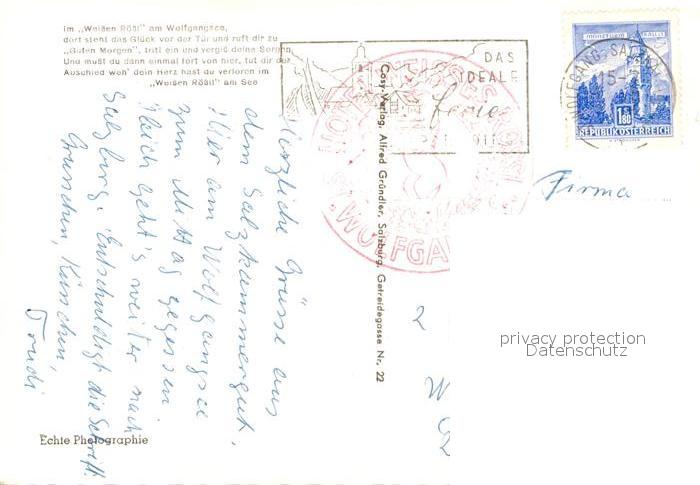 Im „Weißen Rößl" am Wolfgangsee,
dort steht das Glück vor der Tür und ruft dir zu
„Guten Morgen", tritt ein und vergiß deine Sorgen
Und mußt du dann einmal fort von hier, tut dir der
Abschied weh' dein Herz hast du verloren im
„Weißen Rößl" am See
DAS
IDEALE
REPUBLIK ÖSTERREICH
1.80
WOLFGANG
Firma
Cosy-Verlag, Alfred Gründler, Salzburg, Getreidegasse Nr. 22
Herzliche Grüsse aus
dem Salzkammergut.
Hier am Wolfgangsee
zum Mittag gegessen.
Gleich geht's weiter nach
Salzburg. Entschuldigt die Schrift
Grüsschen, Küsschen,
Trudi
2
W
privacy protection
Datenschutz
Echte Photographie